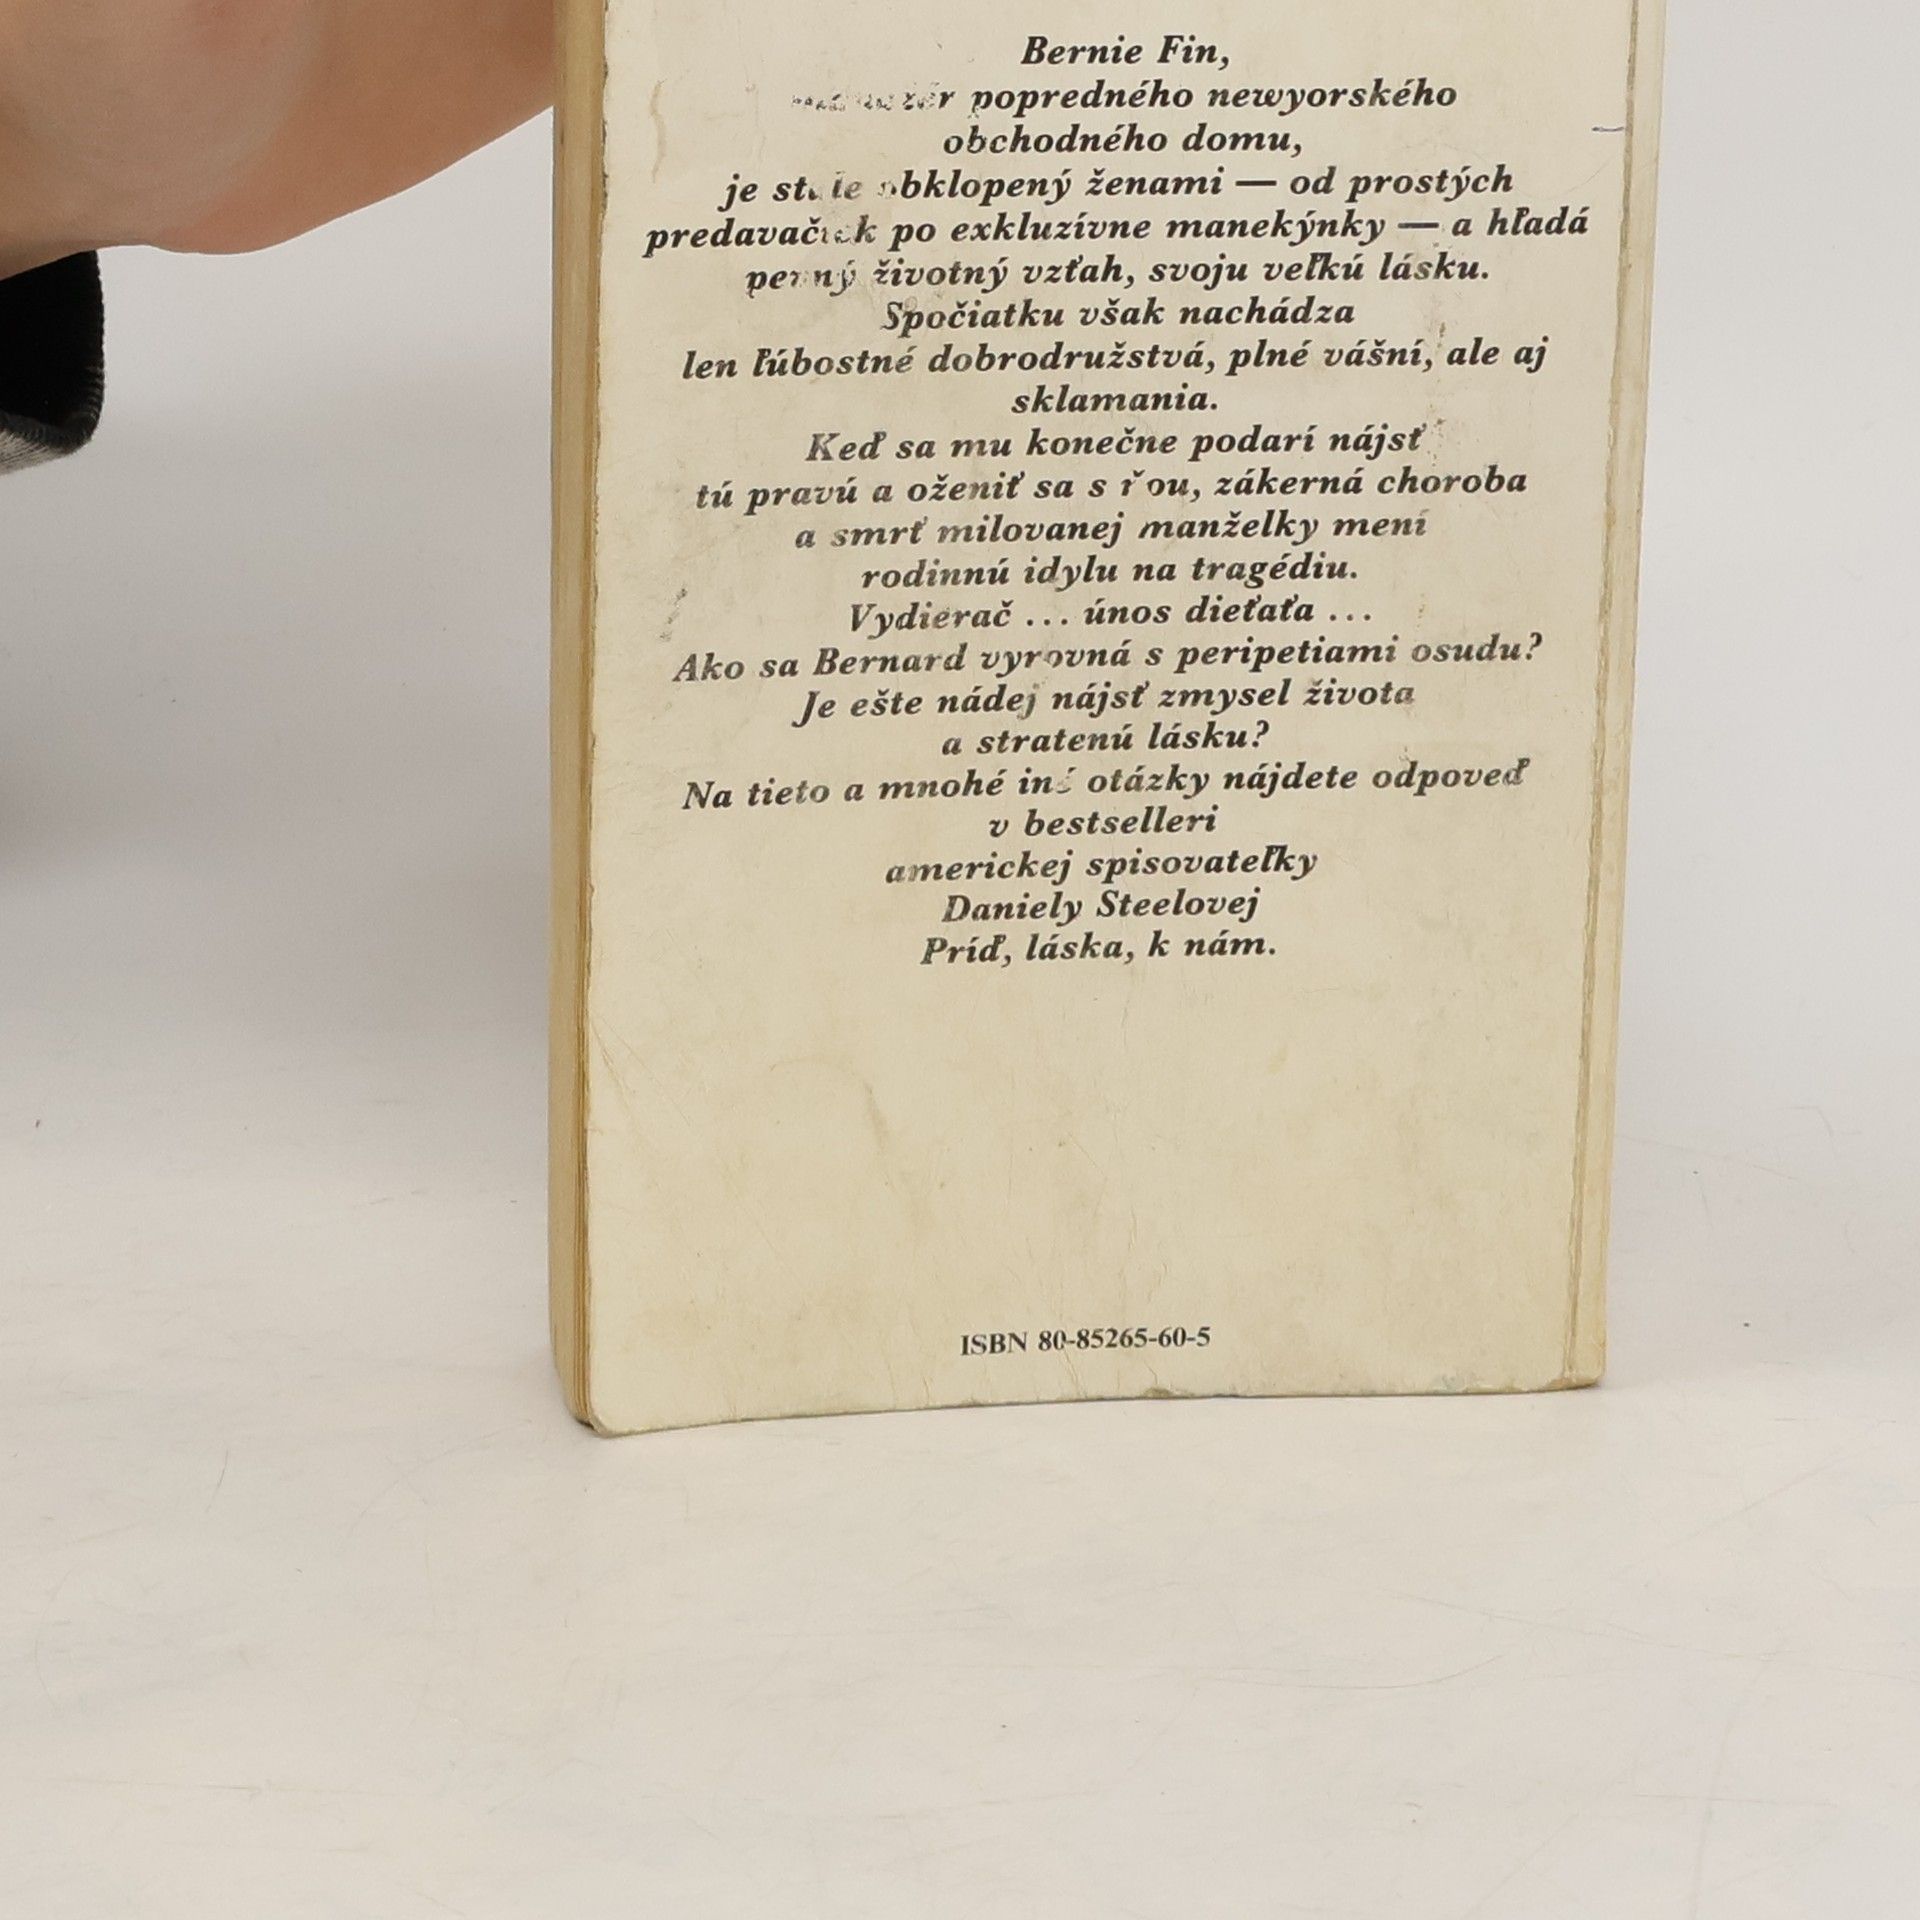 Bernie Fin,
popredného newyorského
obchodného domu,
je stále obklopený ženami — od prostých
predavačiek po exkluzívne manekýnky — a hľadá
pevný životný vzťah, svoju veľkú lásku.
Spočiatku však nachádza
len ľúbostné dobrodružstvá, plné vášní, ale aj
sklamania.
Keď sa mu konečne podarí nájsť
tú pravú a oženiť sa s ňou, zákerná choroba
a smrť milovanej manželky mení
rodinnú idylu na tragédiu.
Vydierač ... únos dieťaťa ...
Ako sa Bernard vyrovná s peripetiami osudu?
Je ešte nádej nájsť zmysel života
a stratenú lásku?
Na tieto a mnohé iné otázky nájdete odpoveď
v bestselleri
americkej spisovateľky
Daniely Steelovej
Príď, láska, k nám.
ISBN 80-85265-60-5